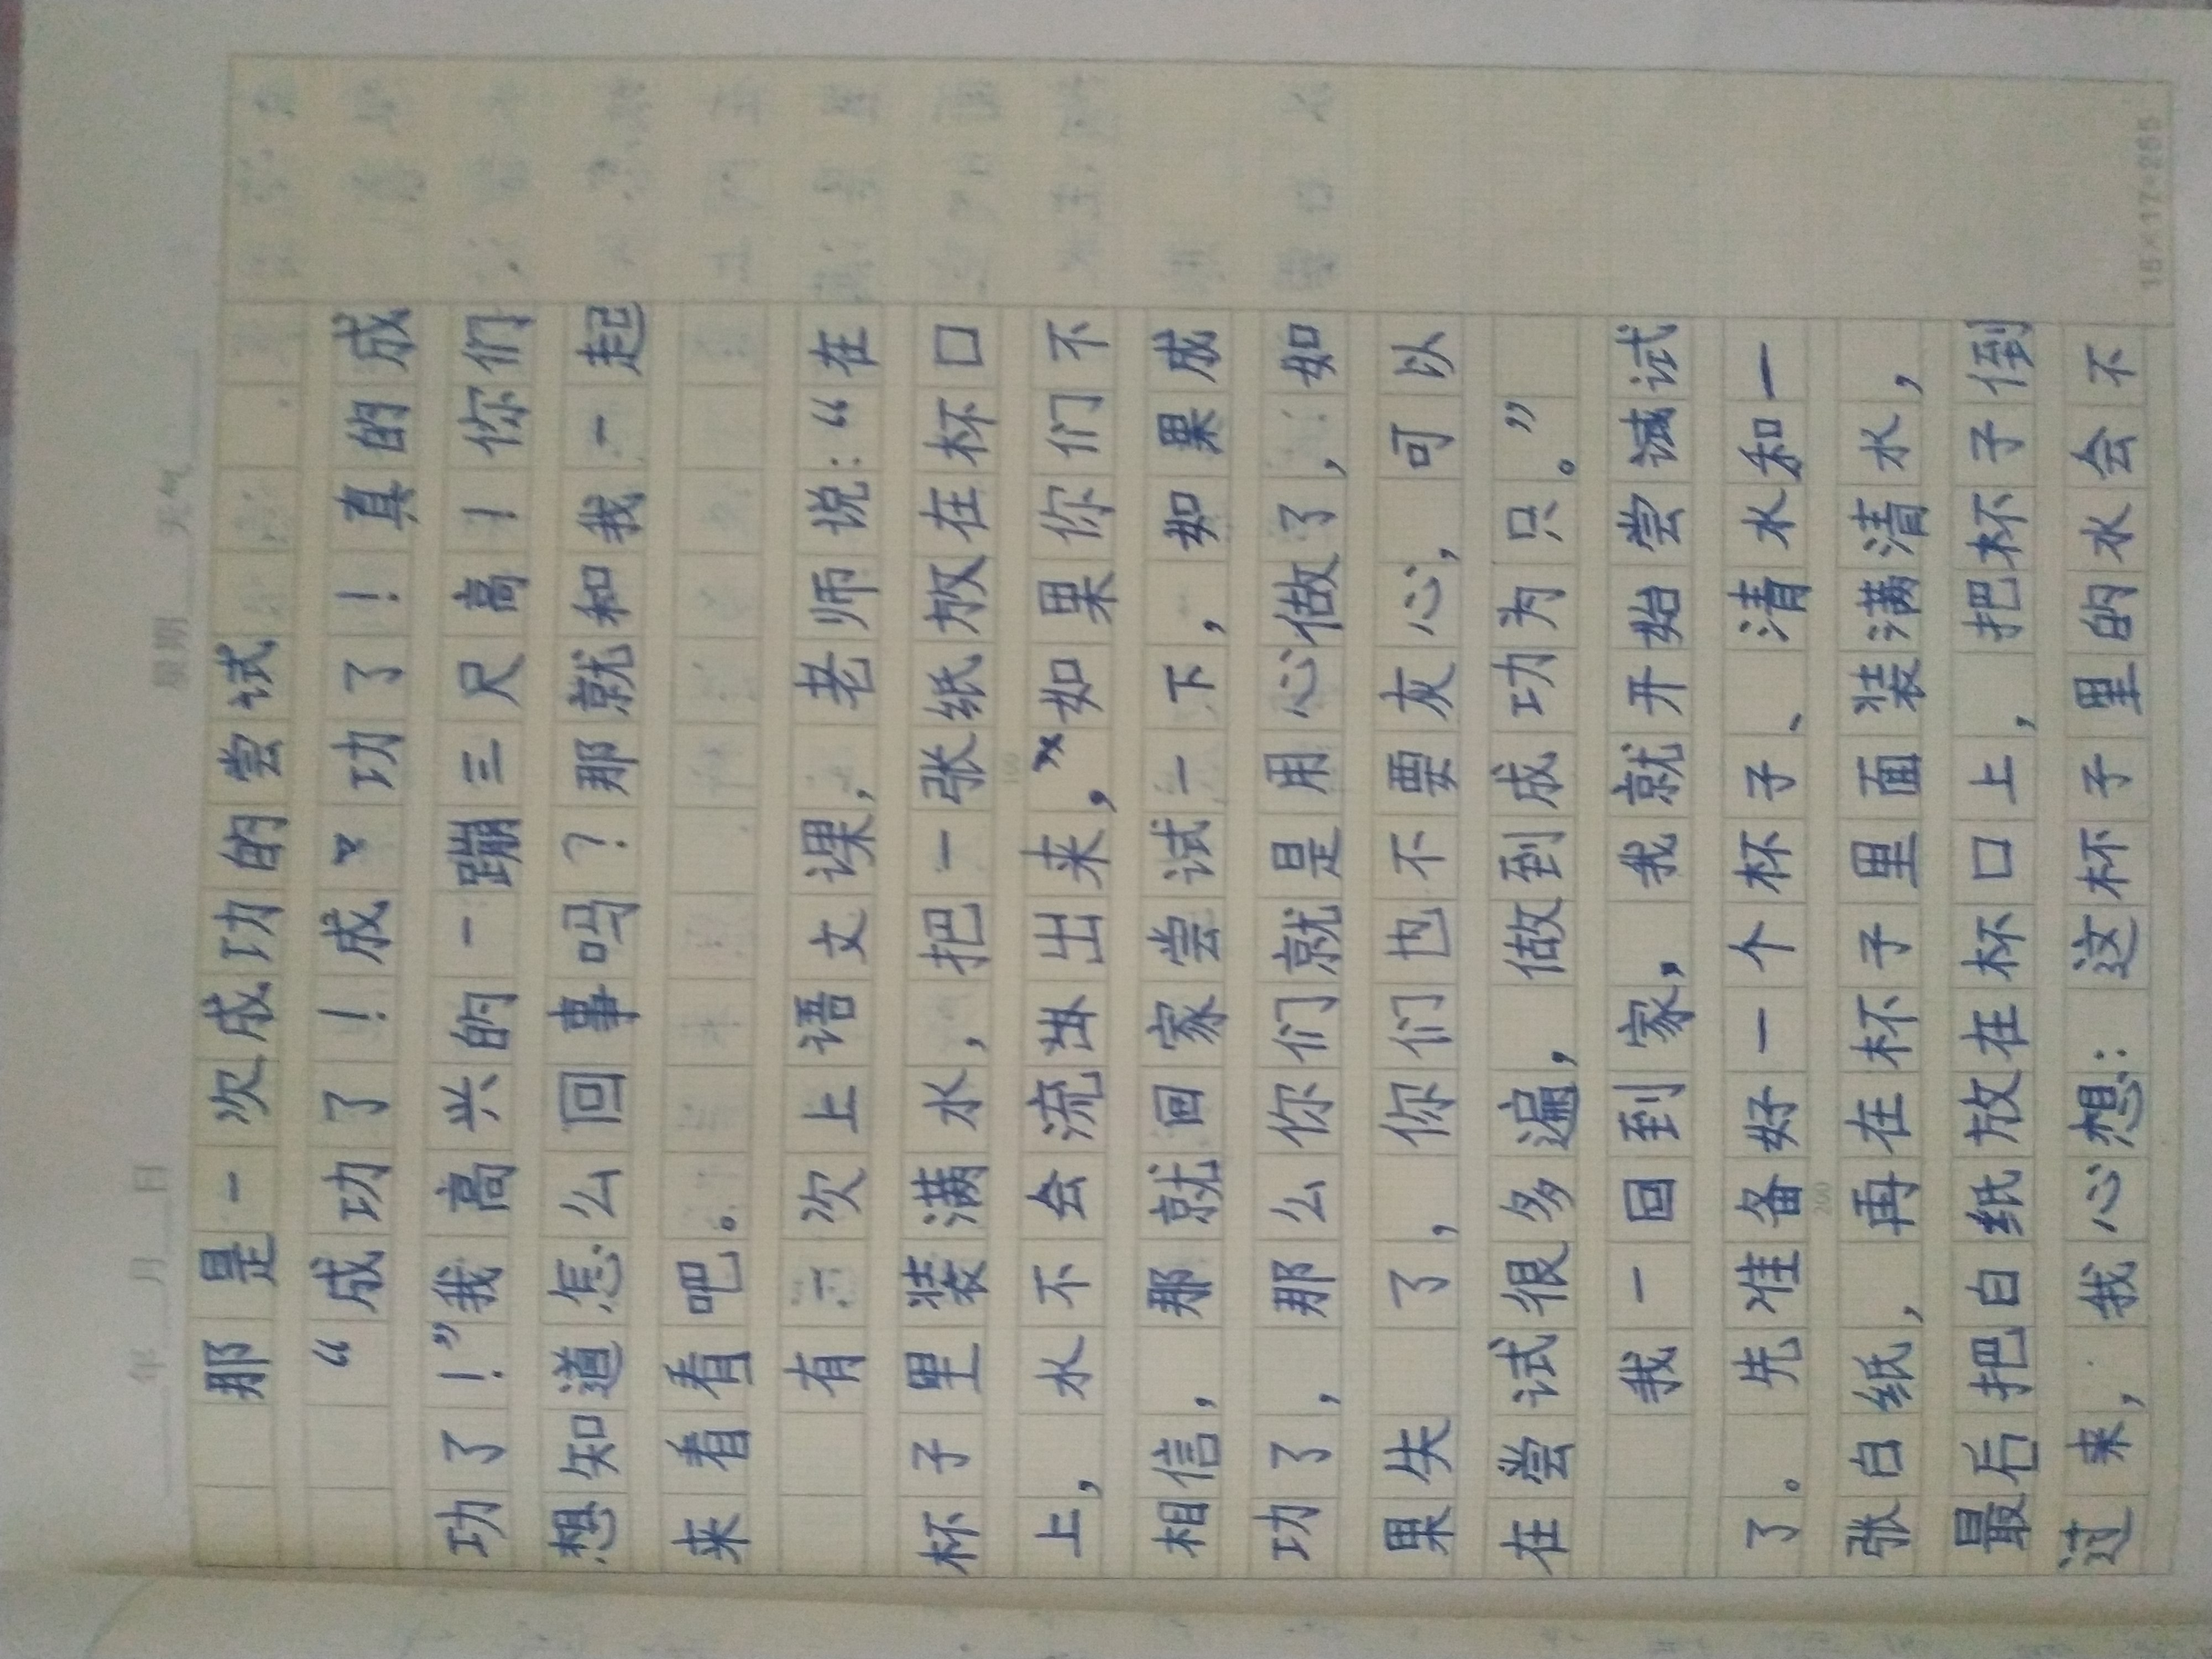 年 月 日 星期 天气
那是一次成功的尝试
“成功了！成功了！真的成
功了！”我高兴的一蹦三尺高！你们
想知道怎么回事吗？那就和我一起
来看看吧。
有次上语文课，老师说：“在
杯子里装满水，把一张纸放在杯口
上，水不会流出来，如果你们不
相信，那就回家尝试一下，如果成
功了，那么你们就是用心做了，如
果失了，你们也不要灰心，可以
在尝试很多遍，做到成功为只。”
我一回到家，我就开始尝试试
了。先准备好一个杯子、清水和一
张白纸，再在杯子里面装满清水，
最后把白纸放在杯口上，把杯子倒
过来，我心想：这杯子里的水会不
100
200
15×17=255